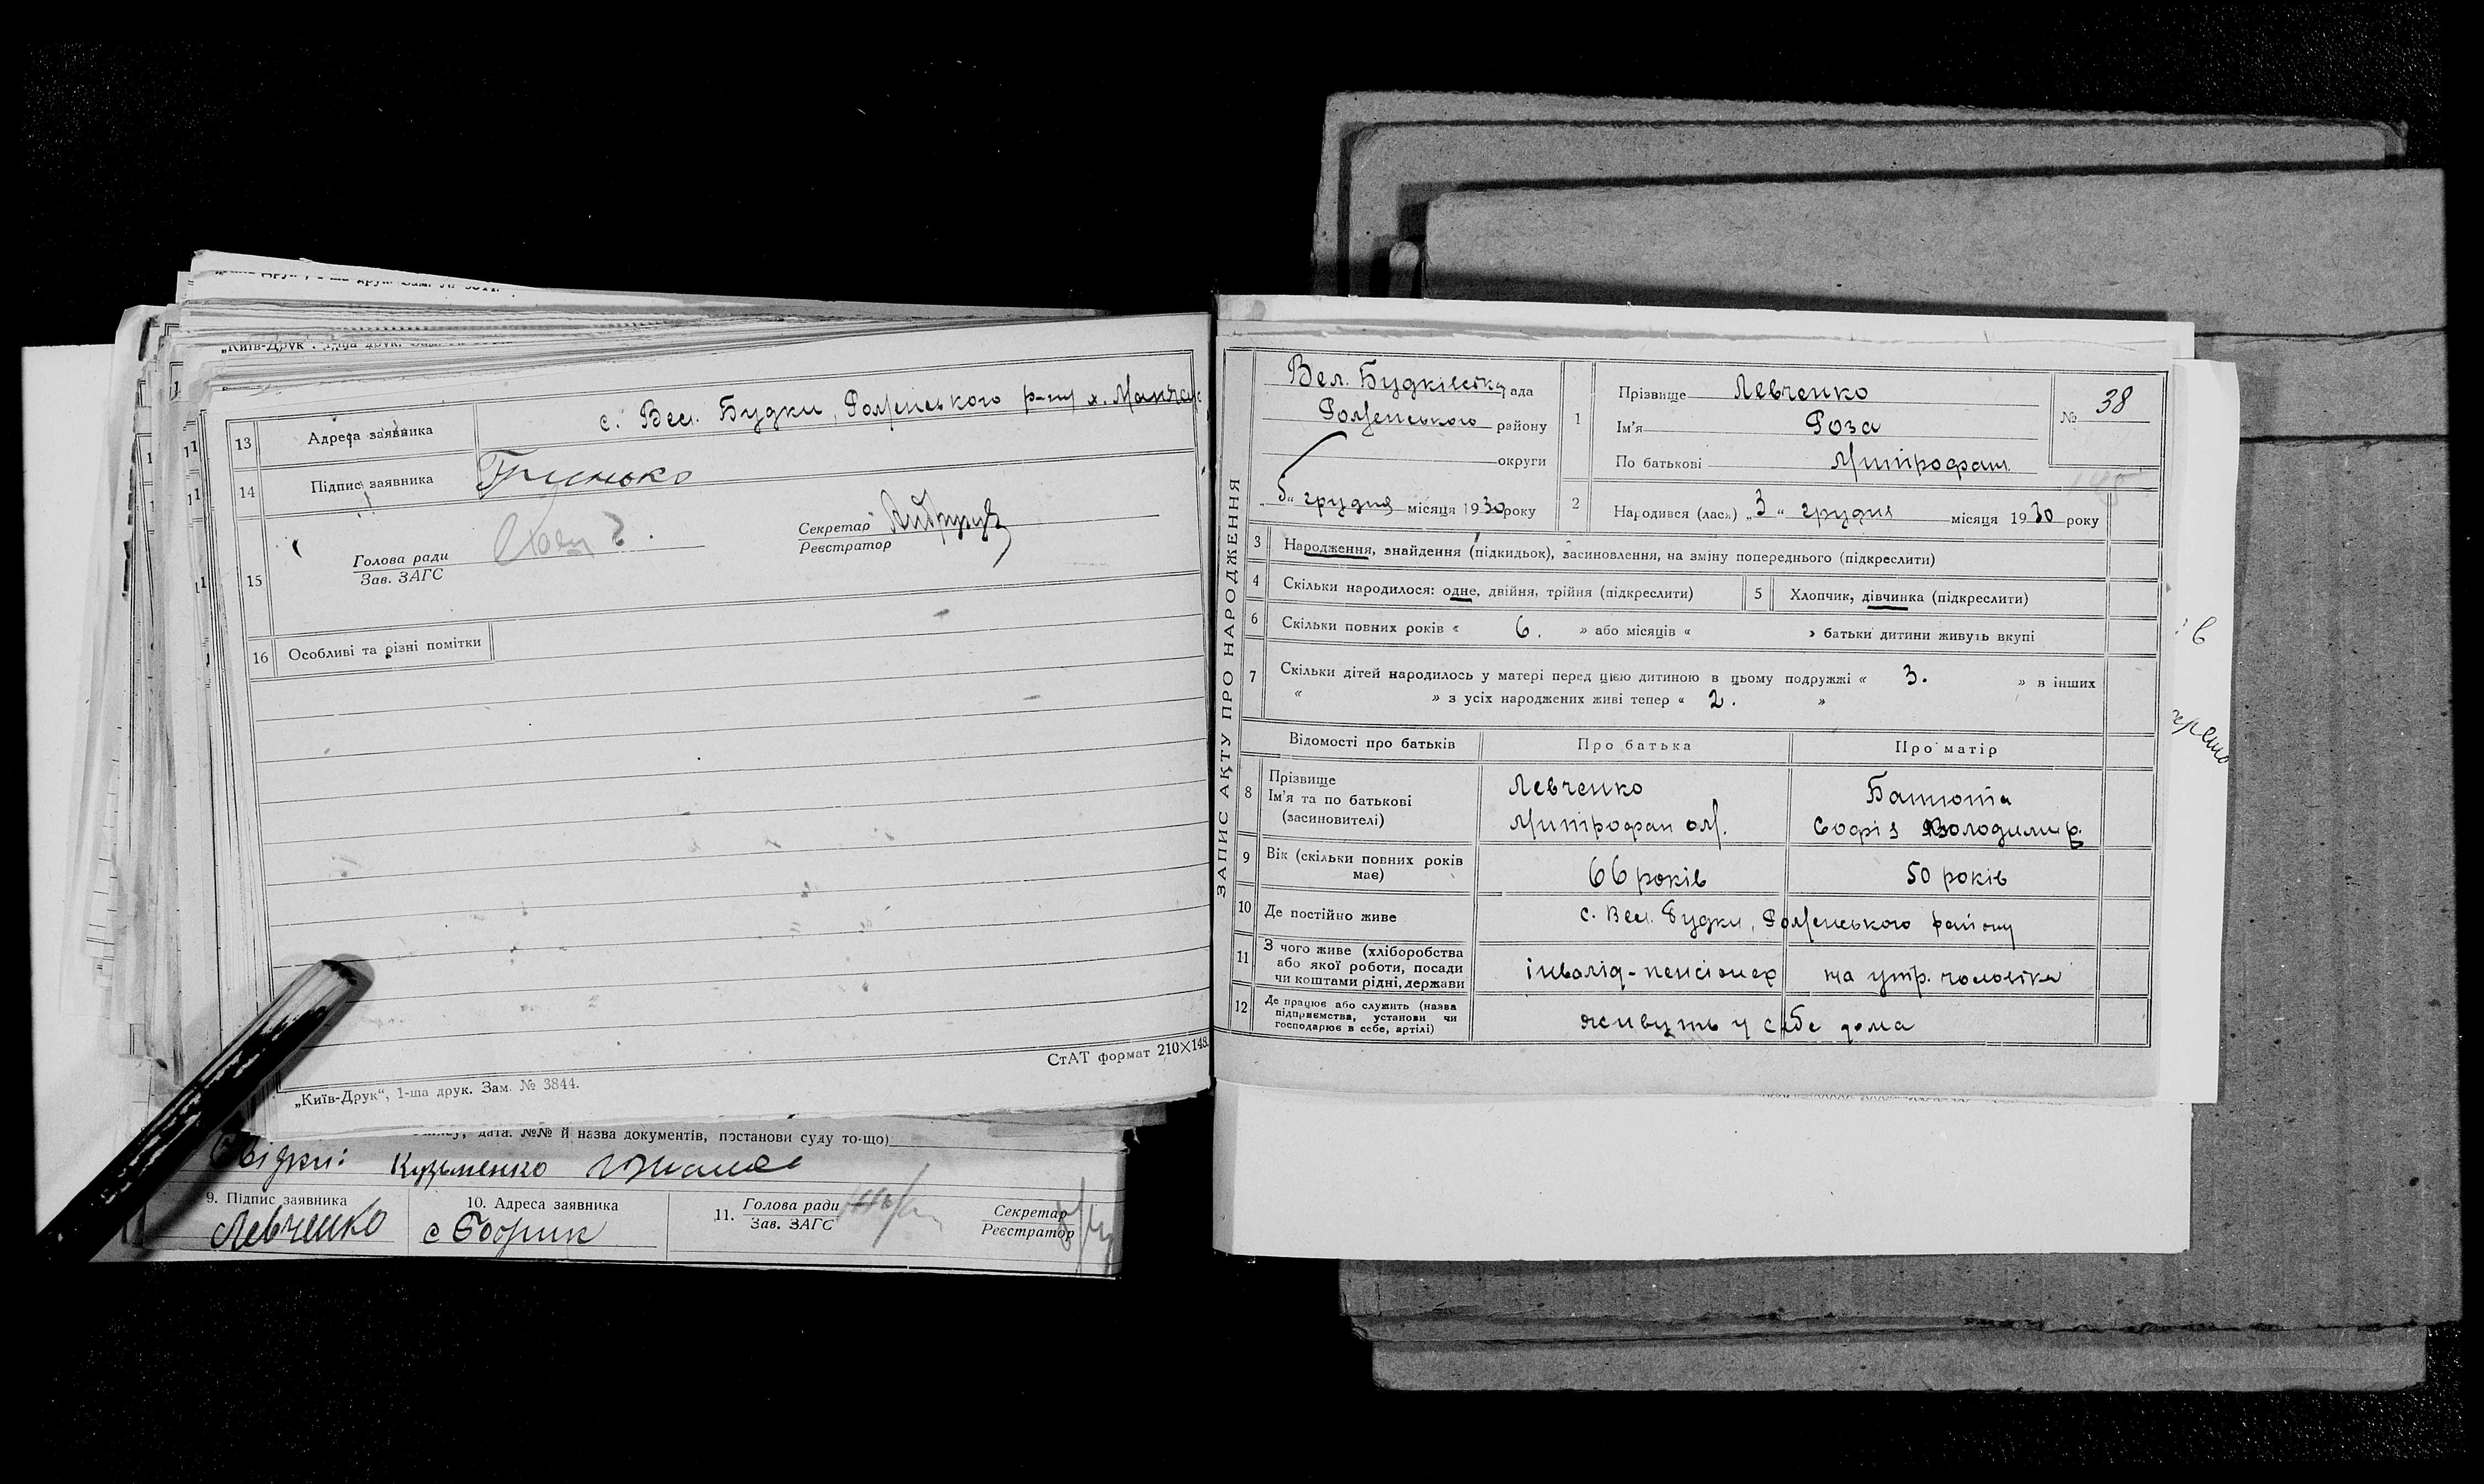 „Київ-Друк“, 1-ша друк. Зам.
13 Адреса заявника с. Вел. Будки, Роменського р-ну х.
14 Підпис заявника Гринько
15 Голова ради
Зав. ЗАГС
Секретар
Реєстратор
16 Особливі та різні помітки
СтАТ формат 210×148.
„Київ-Друк“, 1-ша друк. Зам. № 3844.
дата. №№ й назва документів, постанови суду то-що)
Свідки: Кузьменко
9. Підпис заявника
Левченко
10. Адреса заявника
с Бобрик
11. Голова ради
Зав. ЗАГС
Секретар
Реєстратор
ЗАПИС АКТУ ПРО НАРОДЖЕННЯ
Вел. Будківська рада
Роменського району
округи
„5“ грудня місяця 1930 року
1 Прізвище Левченко
Ім'я Роза
По батькові Митрофан.
№ 38
2 Народився (лася) „3“ грудня місяця 1930 року
3 Народження, знайдення (підкидьок), засиновлення, на зміну попереднього (підкреслити)
4 Скільки народилося: одне, двійня, трійня (підкреслити)
5 Хлопчик, дівчинка (підкреслити)
6 Скільки повних років « 6. » або місяців « » батьки дитини живуть вкупі
7 Скільки дітей народилось у матері перед цією дитиною в цьому подружжі « 3. » в інших
« » з усіх народжених живі тепер « 2. »
Відомості про батьків Про батька Про матір
8 Прізвище
Ім'я та по батькові
(засновителі)
Левченко
Митрофан ом.
Софія Володимир.
9 Вік (скільки повних років має) 66 років 50 років
10 Де постійно живе с. Вел. Будки, Роменського району
11 З чого живе (хліборобства
або якої роботи, посади
чи коштами рідні, держави
інвалід-пенсіонер на утр. чоловіка
12 Де працює або служить (назва
підприємства, установи чи
господарює в себе, артілі)
живуть у себе дома